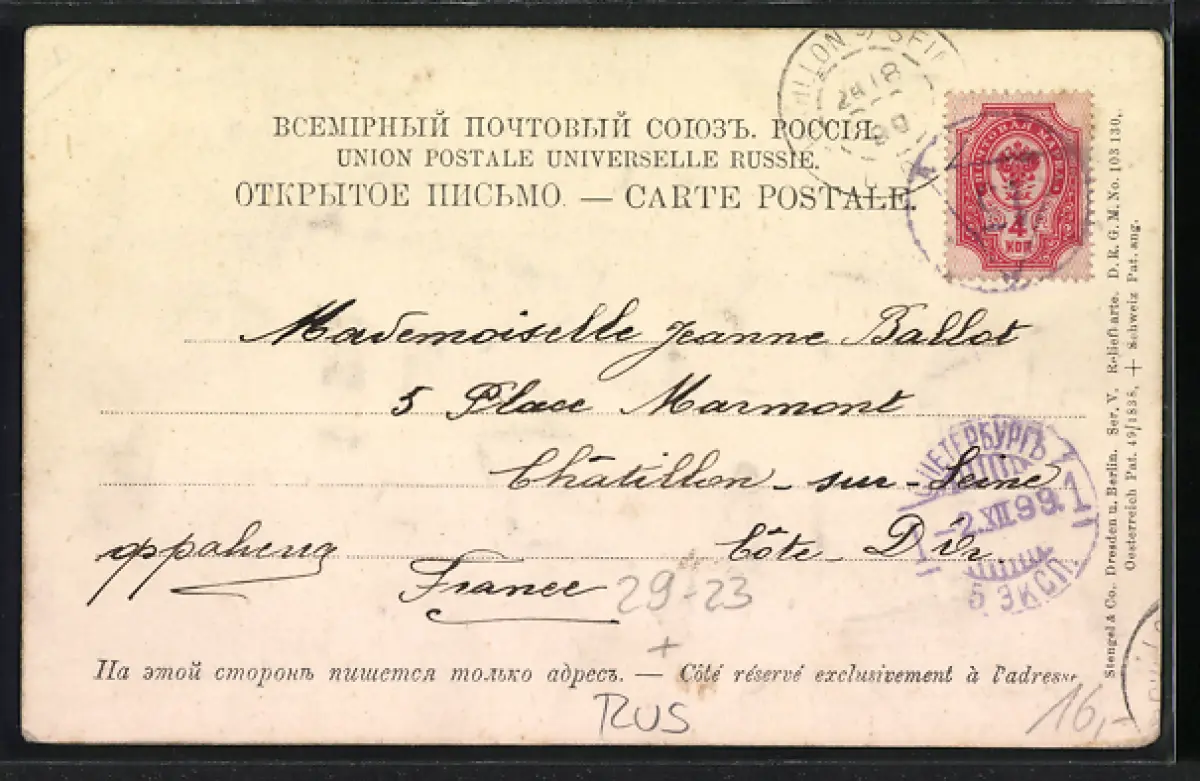 ВСЕМІРНЫЙ ПОЧТОВЫЙ СОЮЗЪ. РОССІЯ.
UNION POSTALE UNIVERSELLE RUSSIE.
ОТКРЫТОЕ ПИСЬМО. — CARTE POSTALE.
ПОЧТОВАЯ МАРКА
4
КОП
Mademoiselle Jeanne Ballot
5 Place Marmont
Châtillon-sur-Seine
Côte-D'Or
France
29-23
+
С.ПЕТЕРБУРГЪ
-2.XII.99.1
5 ЭКСП.
На этой сторонѣ пишется только адресъ. — Côté réservé exclusivement à l'adresse
RUS
16,-
Stengel & Co. Dresden u. Berlin. Ser. V. Reliefkarte. D. R. G. M. No. 103 130,
Oesterreich Pat. 49/1838, + Schweiz Pat. ang.